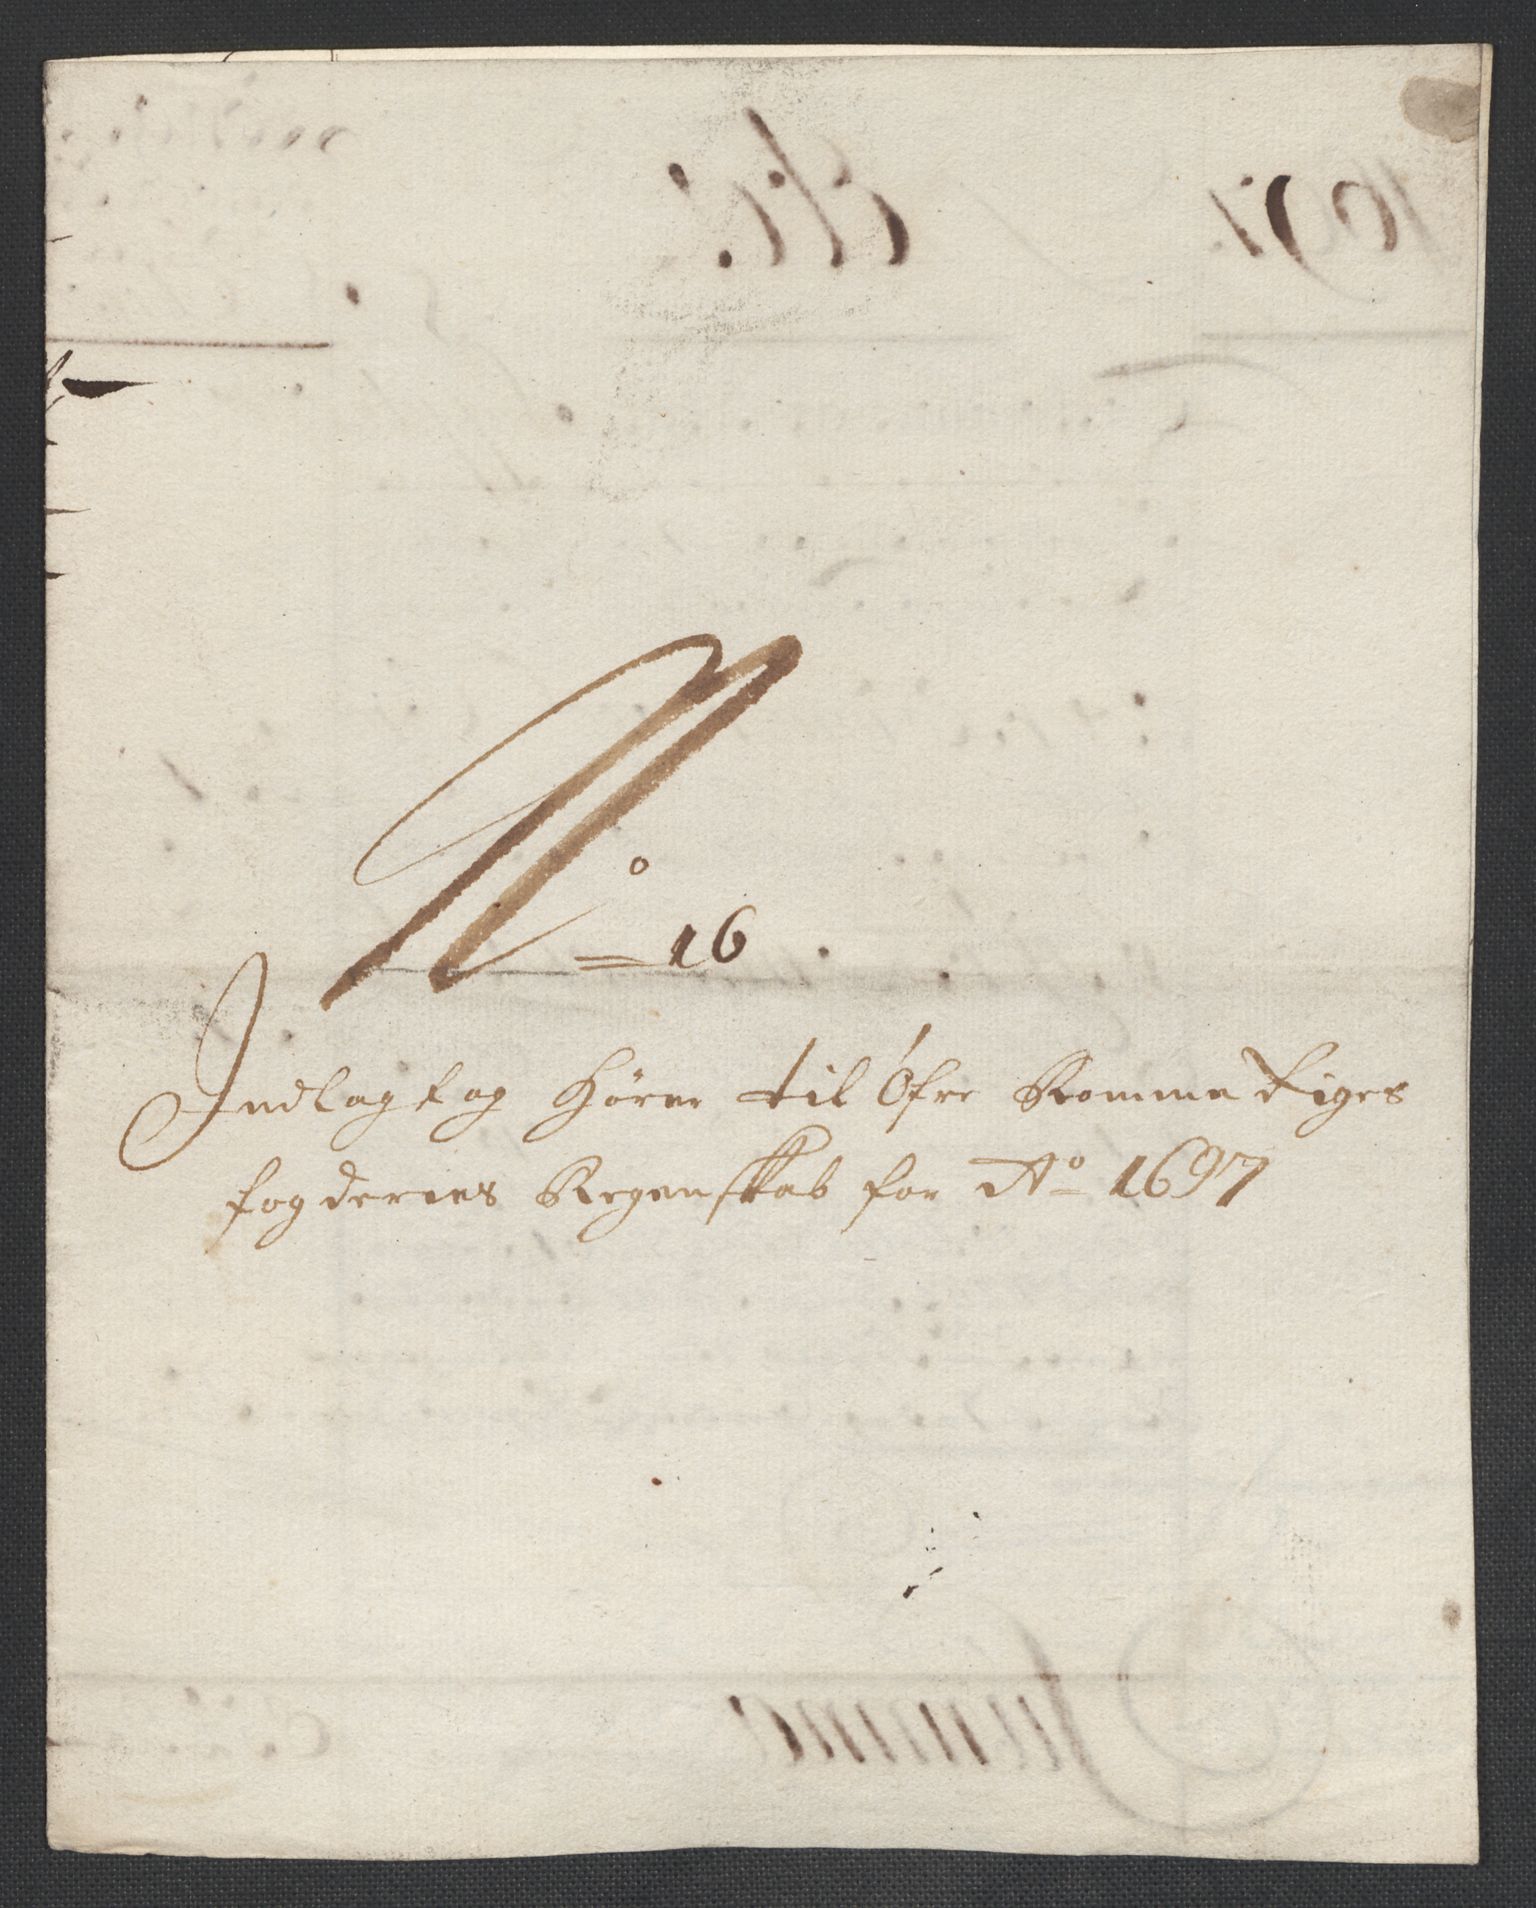 No 16
Indlagt og hörer til Öfre Rommeriges
fogderies Regenskab for Ao 1697